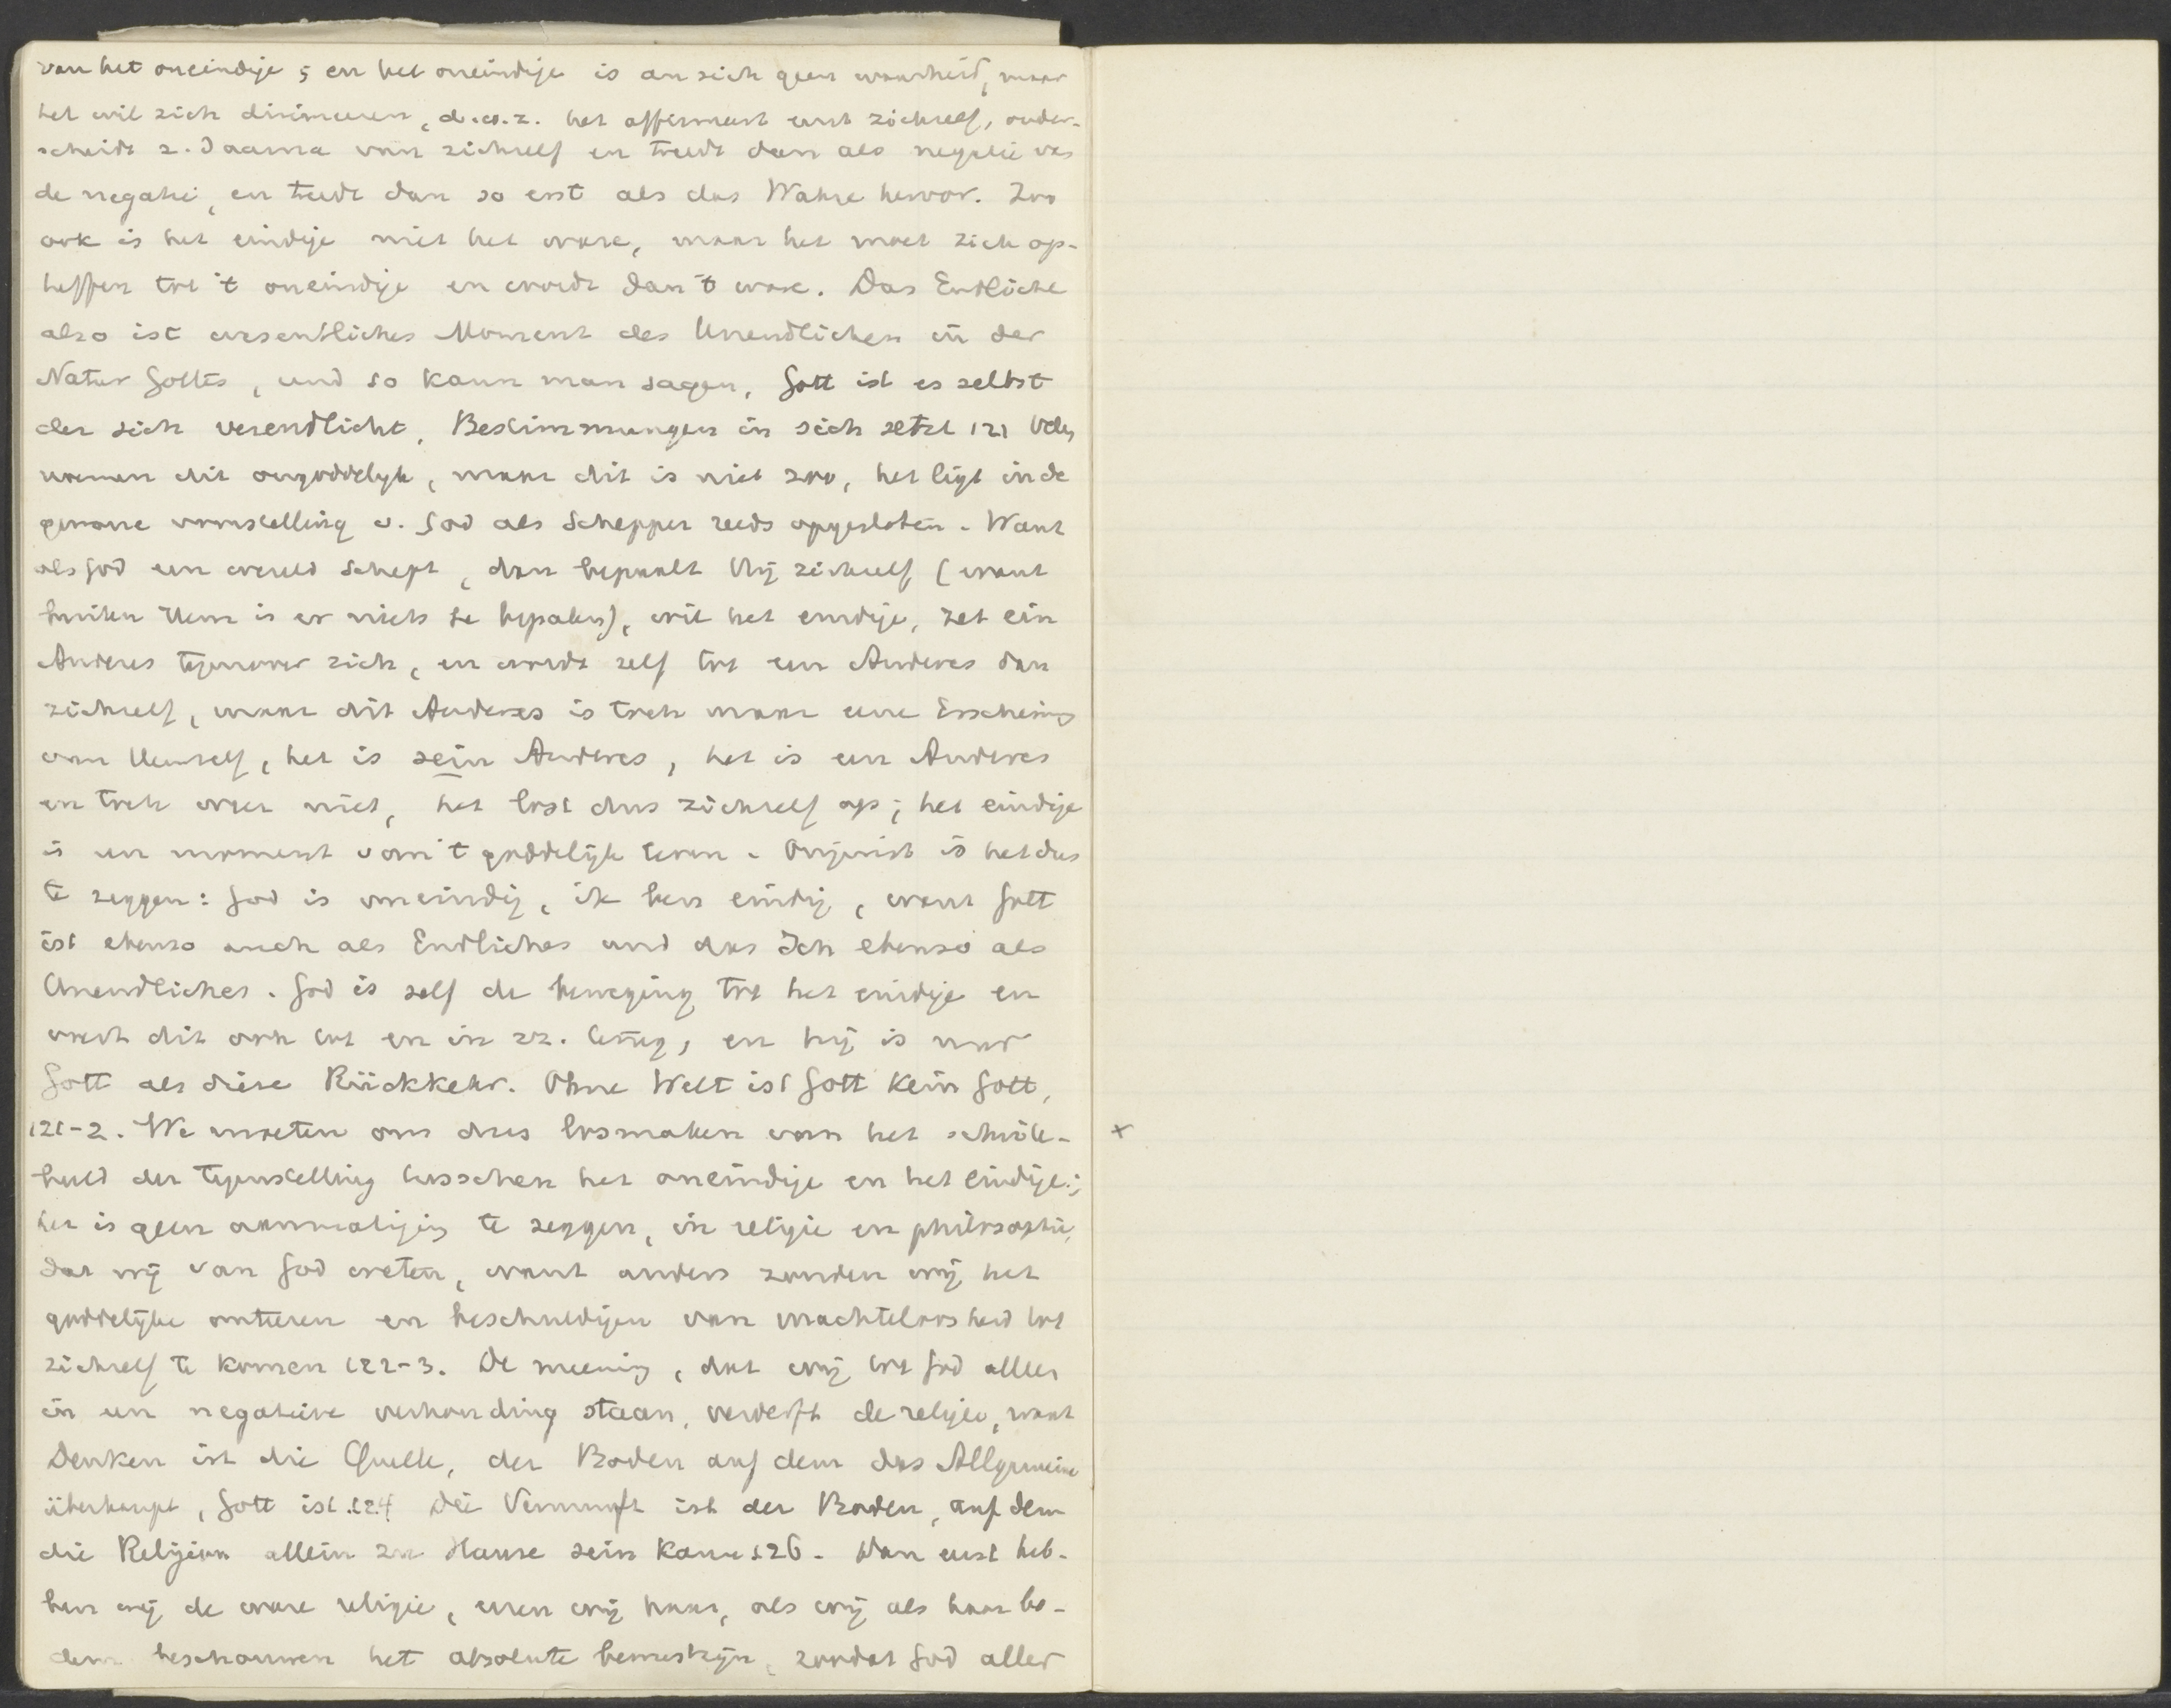 van het oneindige; en het oneindige is an sich geen waarheid, maar
het wil zich dirimeeren, d.w.z. het affirmeert eerst zichzelf, onder-
scheidt z. daarna van zichzelf en treedt dan als negatie van
de negatie, en treedt dan so erst als das Wahre hervor. Zoo
ook is het eindige niet het ware, maar het moet zich op-
heffen tot 't oneindige en wordt dan 't ware. Das Endliche
also ist wesentliches Moment des Unendlichen in der
Natur Gottes, und so kann man sagen, Gott ist es selbst
der sich verendlicht, Bestimmungen in sich setzt 121 Velen
noemen dit ongoddelijk, maar dit is niet zoo, het ligt in de
gewone voorstelling v. God als Schepper reeds opgesloten. Want
als God een wereld schept, dan bepaalt Hij zichzelf (want
buiten Hem is er niets te bepalen), wil het eindige, zet ein
Anderes tegenover zich, en wordt zelf tot een Anderes dan
zichzelf, maar dit Anderes is toch maar eene Erscheinung
van Hemzelf, het is sein Anderes, het is een Anderes
en toch weer niet, het lost dus zichzelf op; het eindige
is een moment van 't goddelijk leven. Onjuist is het dus
te zeggen: God is oneindig, ik ben eindig, want Gott
ist ebenso auch als Endliches und das Ich ebenso als
Unendliches. God is zelf de beweging tot het eindige en
word dit ook tot en in zz. terug, en hij is nur
Gott als diese Rückkehr. Ohne Welt ist Gott kein Gott,
121-2. We moeten ons dus losmaken van het schrik-
beeld der tegenstelling tusschen het oneindige en het eindige;
het is geen aanmatiging te zeggen, in religie en philosophie,
dat wij van God weten, want anders zouden wij het
goddelijke onteeren en beschuldigen van machteloosheid tot
zichzelf te komen 122-3. De meening, dat wij tot God alleen
in een negatieve verhouding staan, verderft de religie, want
Denken ist die Quelle, der Boden auf dem das Allgemeine
überhaupt, Gott ist 124 Die Vernunft ist der Boden, auf dem
die Religion allein zu Hause sein kann 126. Dan eerst heb-
ben wij de ware religie, eeren wij haar, als wij als haar bo-
dem beschouwen het absolute bewustzijn, zoodat God aller
x